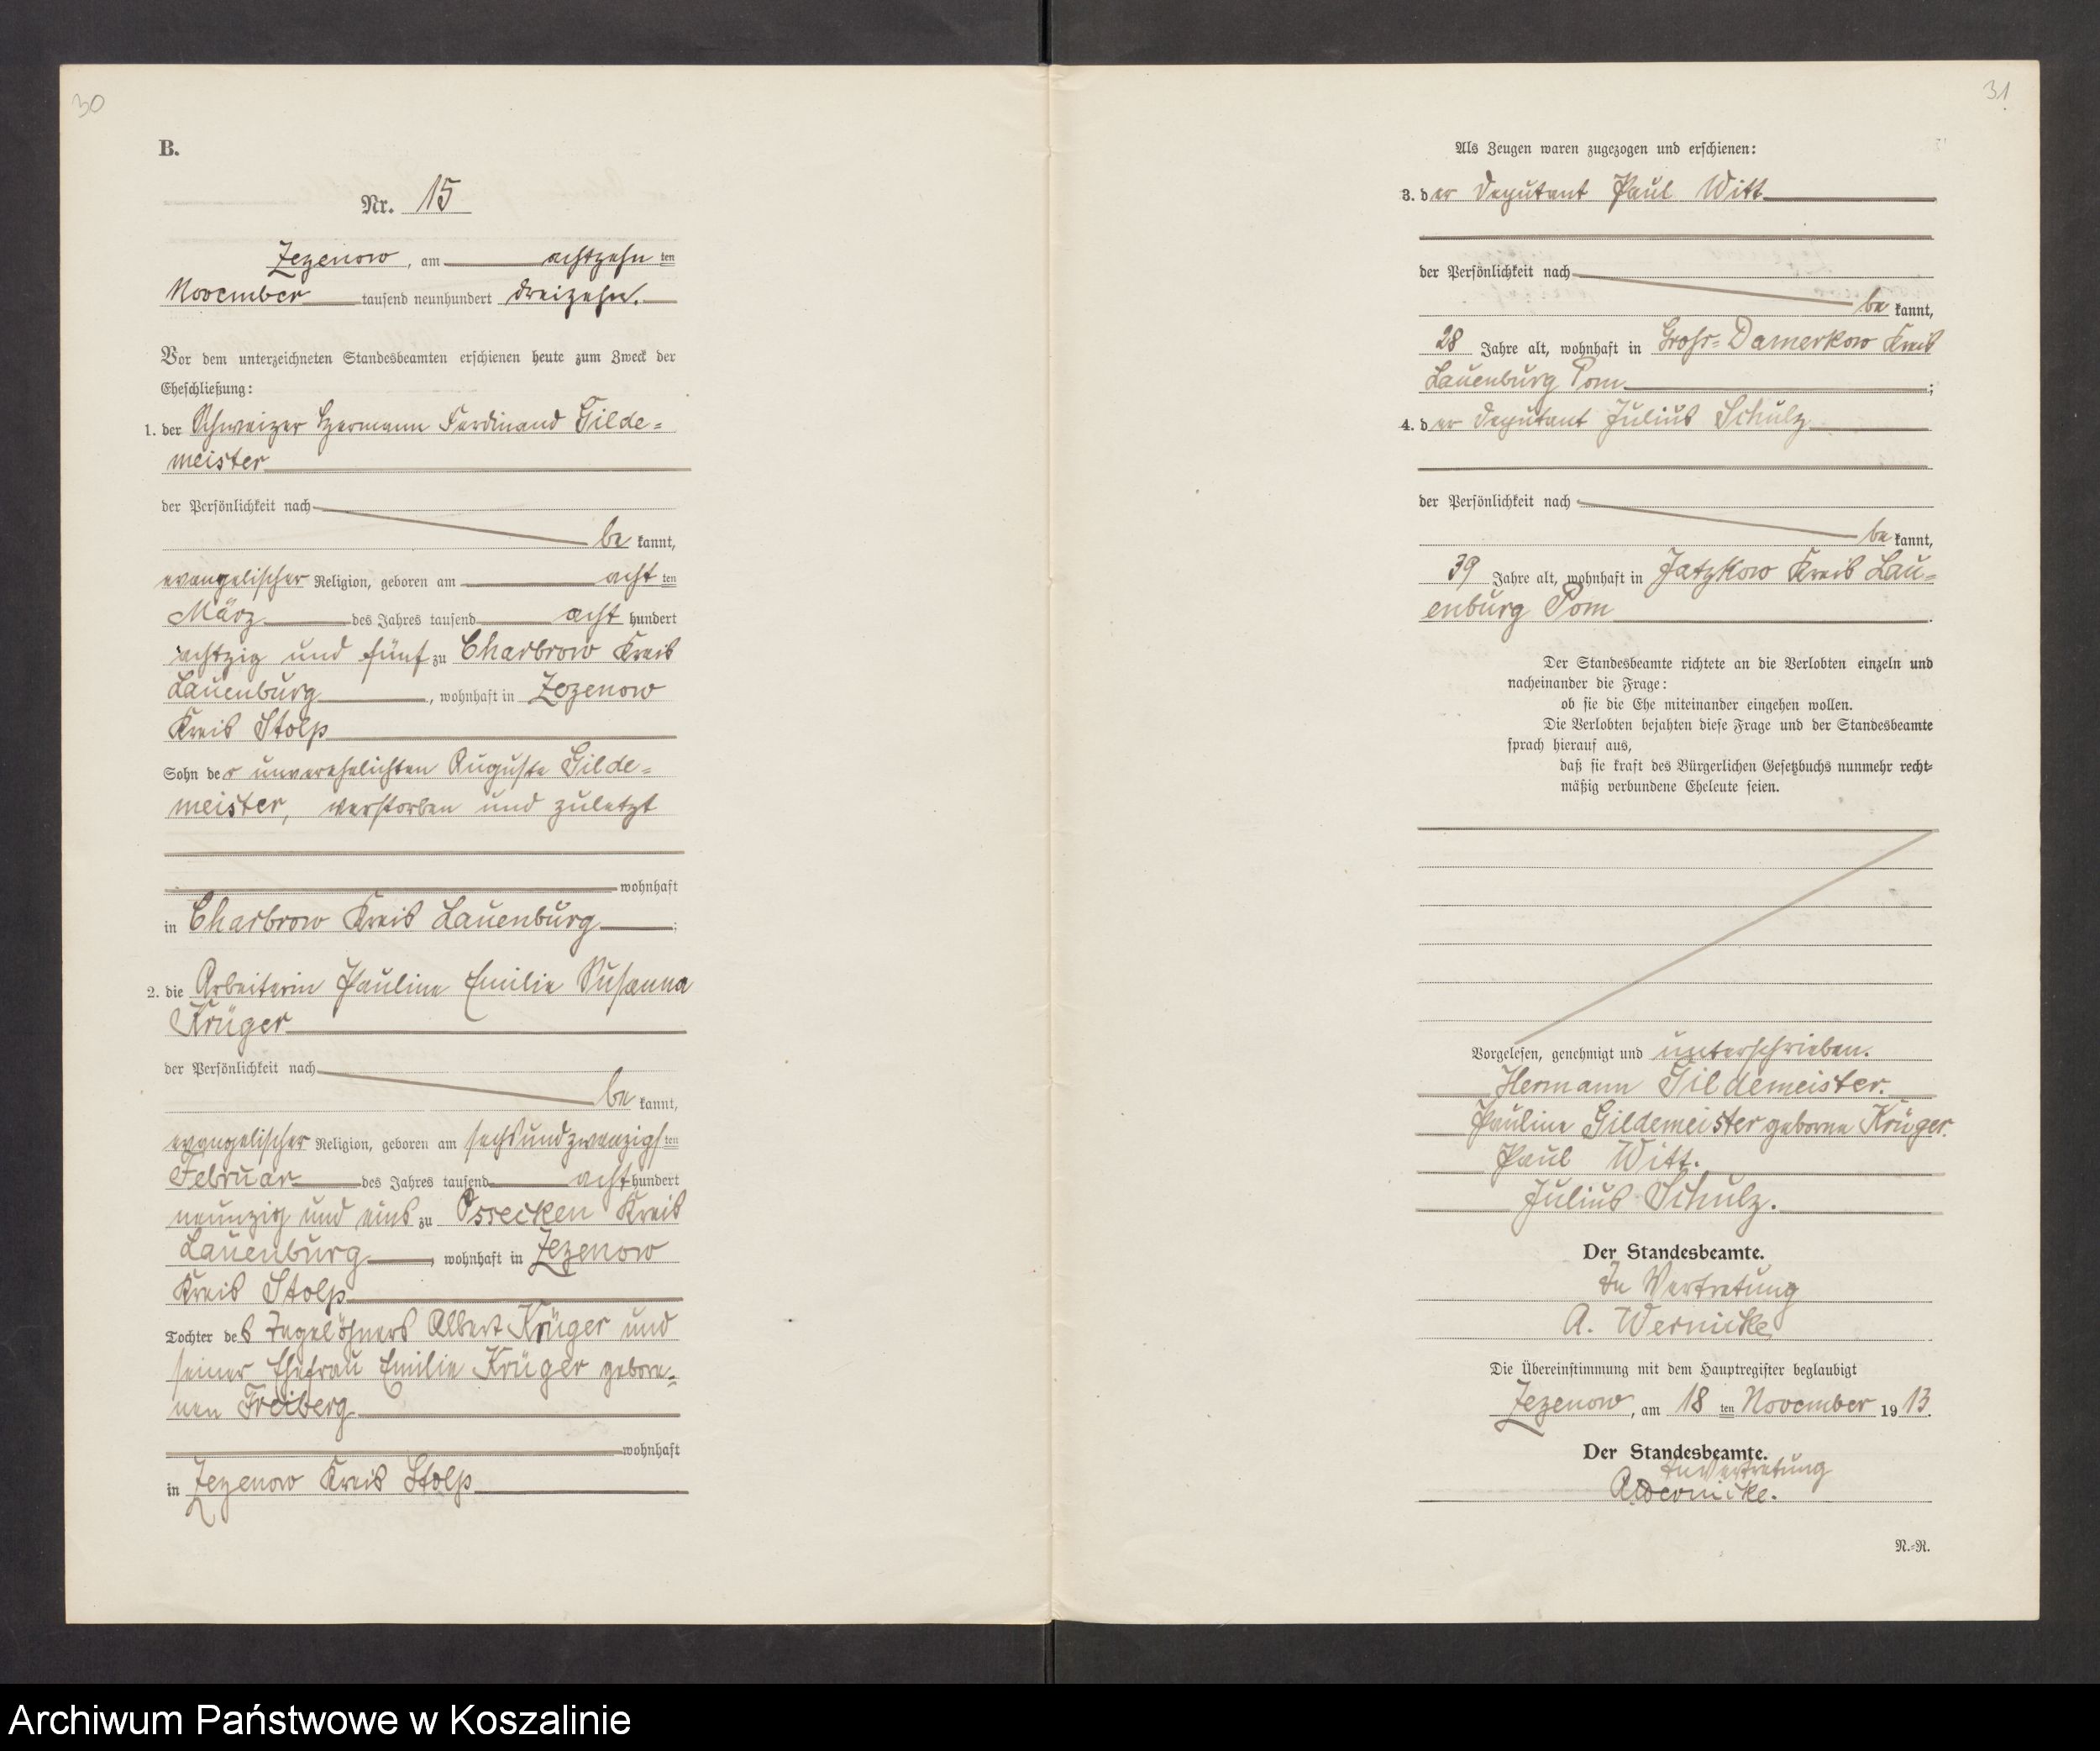 30
B.
Nr. 15
Zezenow, am achtzehn ten
November tausend neunhundert dreizehn.
Vor dem unterzeichneten Standesbeamten erschienen heute zum Zweck der
Eheschließung:
1. der Schweizer Hermann Ferdinand Gilde=
meister
der Persönlichkeit nach
be kannt,
evangelischer Religion, geboren am acht ten
März des Jahres tausend acht hundert
achtzig und fünf zu Charbrow Kreis
Lauenburg, wohnhaft in Zezenow
Kreis Stolp
Sohn der unverehelichten Auguste Gilde=
meister, verstorben und zuletzt
wohnhaft
in Charbrow Kreis Lauenburg;
2. die Arbeiterin Pauline Emilie Susanna
Krüger
der Persönlichkeit nach
be kannt,
evangelischer Religion, geboren am sechsundzwanzigsten
Februar des Jahres tausend acht hundert
neunzig und eins zu Ossecken Kreis
Lauenburg, wohnhaft in Zezenow
Kreis Stolp
Tochter des Tagelöhners Albert Krüger und
seiner Ehefrau Emilie Krüger gebore=
nen Freiberg
wohnhaft
in Zezenow Kreis Stolp
31
Als Zeugen waren zugezogen und erschienen:
3. der Deputant Paul Witt
der Persönlichkeit nach
be kannt,
28 Jahre alt, wohnhaft in Groß=Damerkow Kreis
Lauenburg Pom;
4. der Deputant Julius Schulz
der Persönlichkeit nach
be kannt,
39 Jahre alt, wohnhaft in Jatzkow Kreis Lau=
enburg Pom.
Der Standesbeamte richtete an die Verlobten einzeln und
nacheinander die Frage:
ob sie die Ehe miteinander eingehen wollen.
Die Verlobten bejahten diese Frage und der Standesbeamte
sprach hierauf aus,
daß sie kraft des Bürgerlichen Gesetzbuchs nunmehr recht=
mäßig verbundene Eheleute seien.
Vorgelesen, genehmigt und unterschrieben.
Hermann Gildemeister.
Pauline Gildemeister geborne Krüger.
Paul Witt.
Julius Schulz.
Der Standesbeamte.
In Vertretung
A. Wernicke
Die Übereinstimmung mit dem Hauptregister beglaubigt
Zezenow, am 18 ten November 1913.
Der Standesbeamte.
In Vertretung
A. Wernicke.
N.=R.
Archiwum Państwowe w Koszalinie